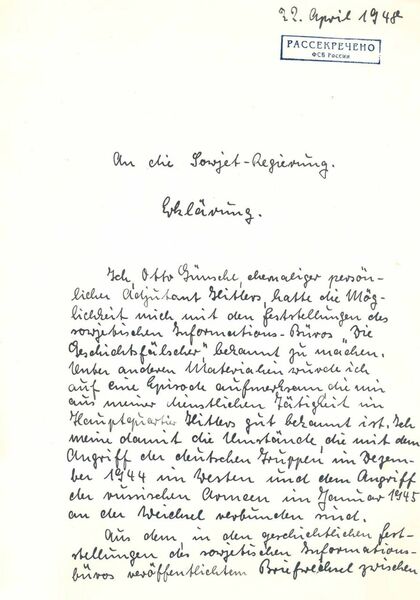 22. April 1948
РАССЕКРЕЧЕНО
ФСБ РОССИИ
An die Sowjet-Regierung.
Erklärung.
Ich, Otto Günsche, ehemaliger persön-
licher Adjutant Hitlers, hatte die Mög-
lichkeit mich mit den Feststellungen des
sowjetischen Informations-Büros „Die
Geschichtsfälscher", bekannt zu machen.
Unter anderen Materialien wurde ich
auf eine Episode aufmerksam die mir
aus meiner dienstlichen Tätigkeit im
Hauptquartier Hitlers gut bekannt ist. Ich
meine damit die Umstände, die mit dem
Angriff der deutschen Truppen im Dezem-
ber 1944 im Westen und dem Angriff
der russischen Armeen im Januar 1945
an der Weichsel verbunden sind.
Aus dem, in den geschichtlichen Fest-
stellungen des sowjetischen Informations-
büros veröffentlichtem Briefwechsel zwischen